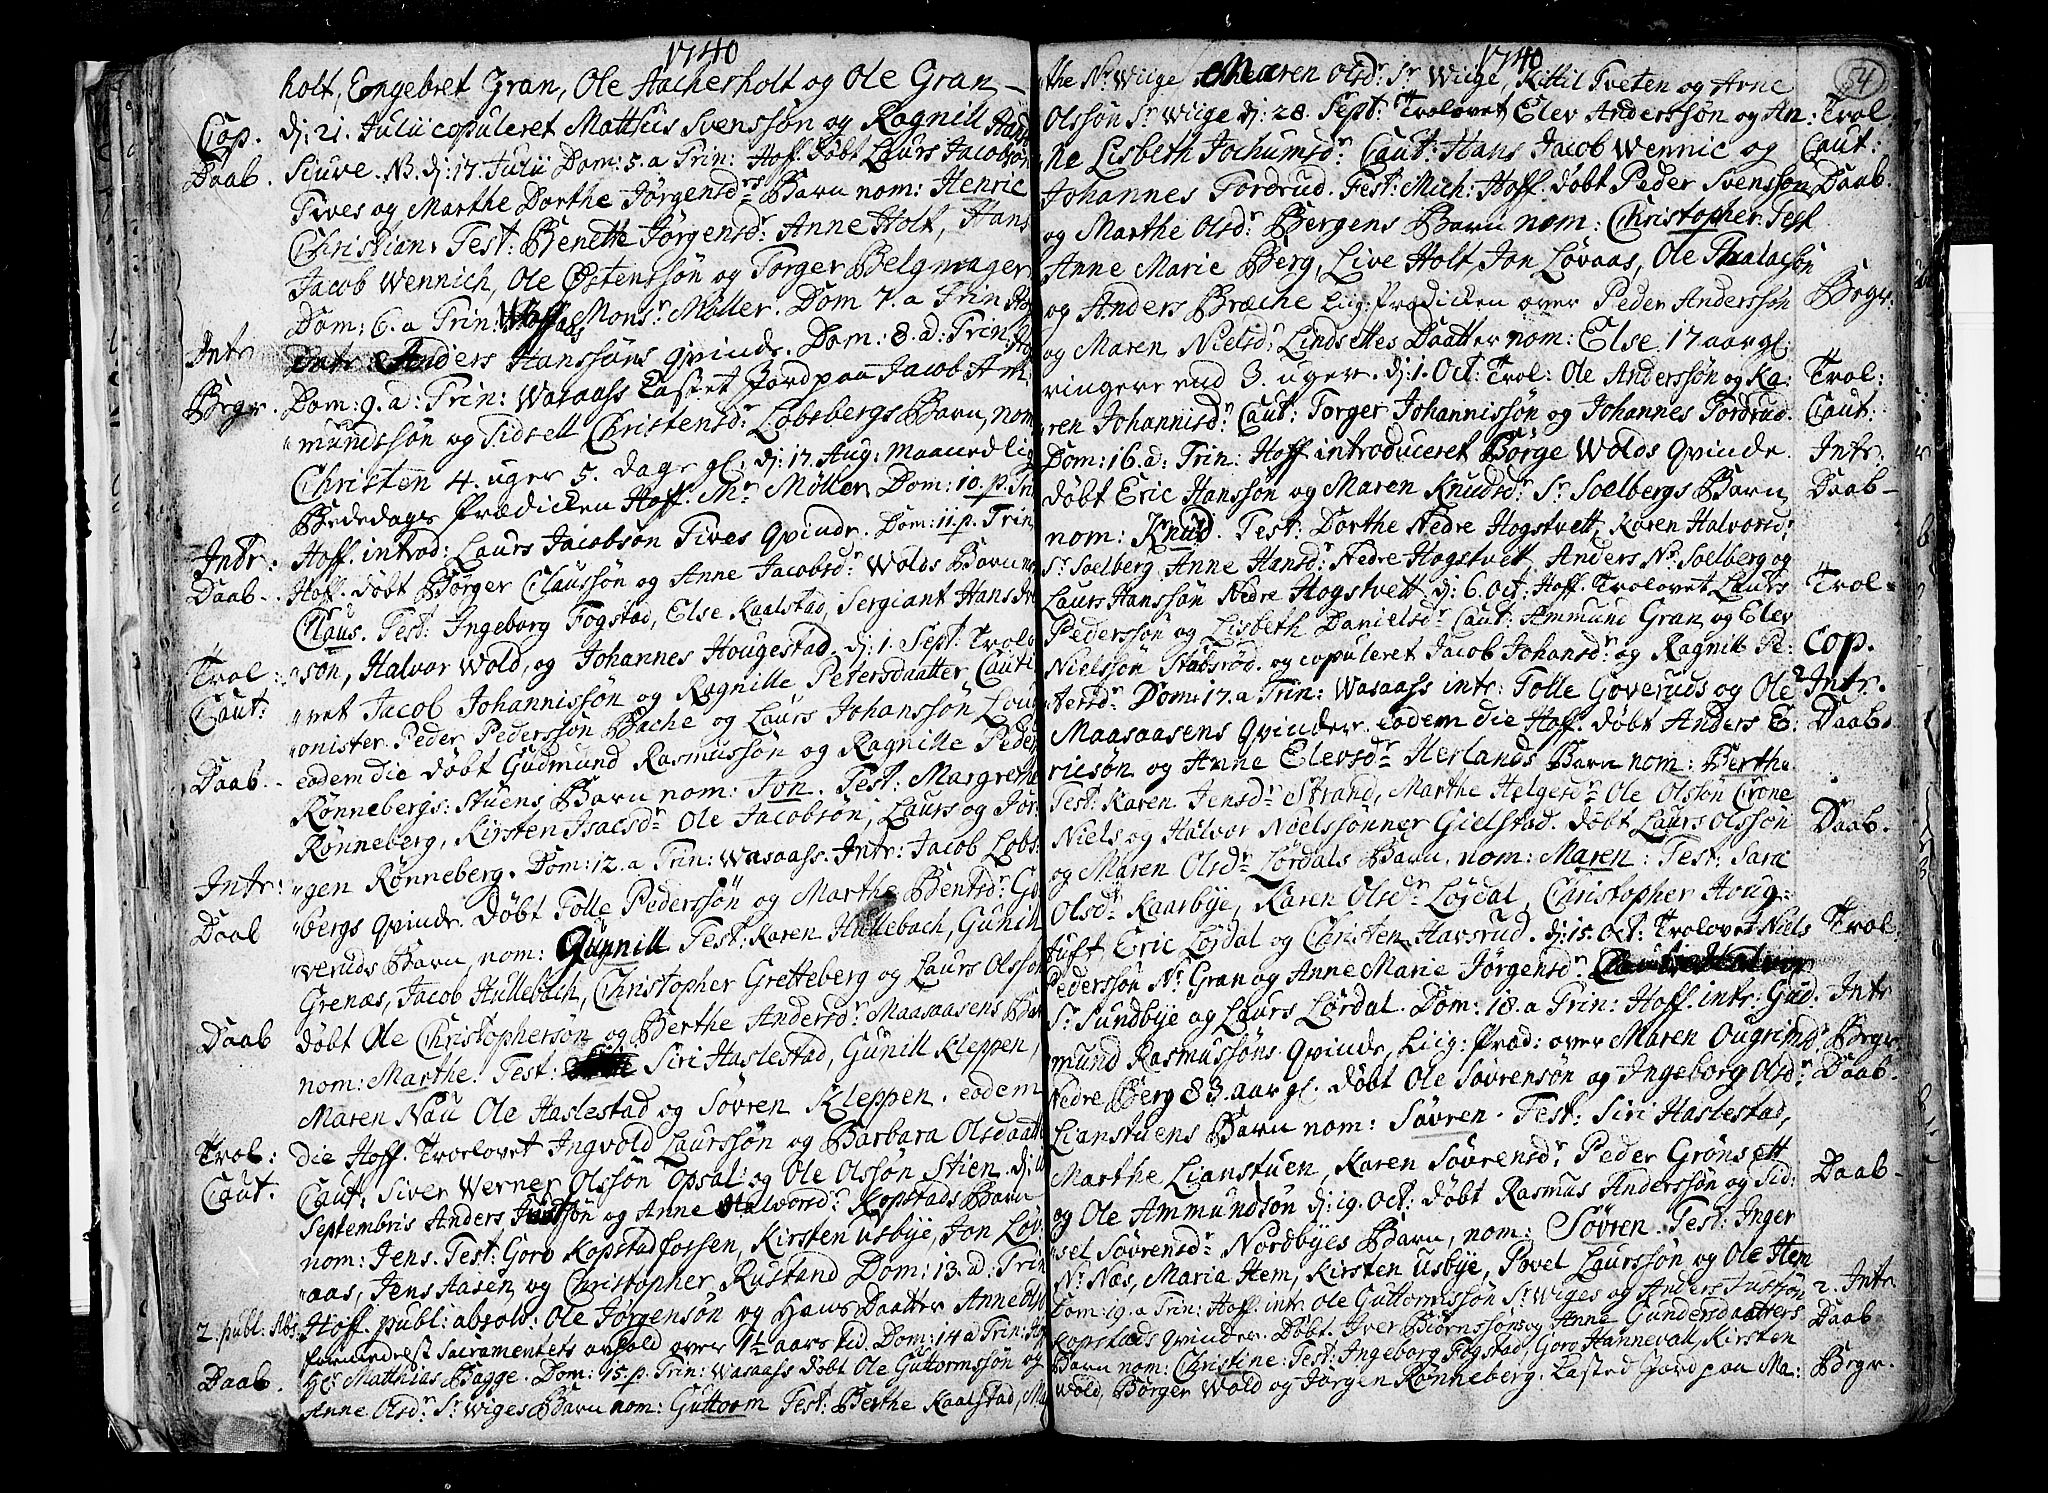 1740
holt, Engebret Gran, Ole Aacherholt og Ole Gran
Cop. Dj: 21. Julii copuleret Matthis Svenssøn og Ragnill
Daab. Siuve. NB. dj: 17. Julii Dom: 5. a Trin: Hoff. døbt Laurs Jacobsøn
Tives og Marthe Dorthe Jørgensdrs Barn nom: Henric
Christian. Test: Benette Jørgensdr Anne Holt, Hans
Jacob Wennich, Ole Østenssøn og Torger Belgmager
Dom: 6. a Trin: Monsr Møller. Dom 7. a Trin
Intr Intr: Anders Hanssøns qvinde. Dom: 8. a: Trin
Begr. Dom: 9. a: Trin: Wasaass Castet Jord paa Jacob Am:
mundssøn og Sidsell Christensdr Lobsbergs Barn, nom
Christen 4. uger 5. dage gl. dj: 17. Aug: maanedlig
Bededags Prædicken Hoff. Mr Møller. Dom: 10. p. Trin
Intr: Hoff. introd: Laurs Jacobsøn Tives Qvinde. Dom: 11. p. Trin
Daab. Hoff. døbt Børger Claussøn og Anne Jacobsdr Wolds Barn
Claus. Test: Ingeborg Fogstad, Else Kaalstad, Sergiant Hans
Trol: søn, Halvor Wold, og Johannes Hougestad. dj: 1. Sept. Trolo
Caut: vet Jacob Johannissøn og Ragnille Petersdaatter Cauti
onister Peder Pederssøn Bache og Laurs Johanssøn
Daab. eodem die døbt Gudmund Rasmussøn og Ragnille Peders
Rønnebergs: Stuens Barn nom: Jon. Test: Margrethe
Rønneberg, Kirsten Isacsdr Ole Jacobsøn, Laurs og Jør
Intr: gen Rønneberg. Dom: 12. a Trin: Wasaass. Intr: Jacob Lobs
Daab bergs qvinde. Døbt Tolle Pederssøn og Marthe Bentsdr Go
veruds Barn nom: Gunnill Test: Karen Hullebach, Gunill
Grenæs, Jacob Hullebach, Christopher Gretteberg og Laurs Olssøn
Daab døbt Ole Christophersøn og Berthe Andersdr Maasaasens Bar
nom: Marthe. Test: Siri Haslestad, Gunill Kleppen,
Maren Nau Ole Haslestad og Søvren Kleppen. eodem
Trol: die Hoff. Troelovet Ingvold Laurssøn og Barbara Olsdaatt
Caut. Caut: Siver Werner Olssøn Opsal og Ole Olssøn Stien. dj:
Septembris Anders Justsøn og Anne Halvorsdr Kopstads Barn
nom: Jens. Test: Goro Kopstadfossen, Kirsten Usbye, Jon Løv
aas, Jens Aasen og Christopher Rustand Dom: 13. a: Trin
2. publ: Abs. Hoff. publ: absolv: Ole Jørgensøn og Hans Daatter Anne
formedelst Sacramentets avhold over 1½ aars tid. Dom: 14 a Trin:
Hr Matthias Bagge. Dom: 15. p. Trin: Wasaass døbt Ole Guttormssøn og
Daab. Anne Olsdr Sr Wiges Barn nom: Guttorm Test: Berthe Kaalstad, Ma
1740
54
the Nr Wiige Maren Olsdr Sr Wiige, Kittil Tveten og Arne
Olssøn Sr Wiige dj: 28. Sept: Trolovet Elev Anderssøn og An: Trol:
ne Lisbeth Jochumsdr Caut: Hans Jacob Wennic og Caut:
Johannes Fordrud. Fest: Mich: Hoff. døbt Peder Svenssøn Daab.
og Marthe Olsdr Bergens Barn nom: Christopher Test
Anne Marie Berg, Live Holt, Jon Løvaas, Ole
og Anders Bræche Liig: Prædicken over Peder Anderssøn Begr.
og Maren Nielsdr Lindsettes Daatter nom: Else 17 aar gl:
ringere end 3. uger. dj: 1. Oct: Trol: Ole Anderssøn og Ka: Trol:
ren Johannisdr Caut: Torger Johannissøn og Johannes Fordrud Caut:
Dom: 16. a: Trin: Hoff introduceret Børge Wolds Qvinde. Intr.
døbt Eric Hanssøn og Maren Knudsdr Sr Soelbergs Barn Daab
nom: Knud. Test: Dorthe Nedre Hogstvett, Karen Halvorsdr
Sr Soelberg Anne Hansdr Nedre Hogstvett, Anders Nr Soelberg og
Laurs Hanssøn Nedre Hogstvett. dj: 6. Oct: Hoff. Trolovet Laurs Trol
Pederssøn og Lisbeth Danielsdr Caut: Ammund Gran og Elev
Nielssøn Stubsrød. og copuleret Jacob Johansdr og Ragnill Pe: Cop.
tersdr Dom: 17. a Trin: Wasaass intr: Tolle Goveruds og Ole 2 Intr.
Maasaasens Qvinder. eodem die Hoff. døbt Anders E: Daab.
ricsøn og Anne Elevsdr Herlands Barn nom: Berthe.
Test: Karen Jensdr Strand, Marthe Helgesdr Ole Olssøn Crone
Niels og Halvor Nielssønner Gielstad. døbt Laurs Olssøn Daab.
og Maren Olsdr Lørdals Barn. nom: Maren: Test: Sara
Olsdr Kaarbye, Karen Olsdr Lørdal, Christopher Houg:
tuft, Eric Lørdal og Christen Havsrud. dj: 15. Oct: Trolovet Niels Trol
Pederssøn Nr Gran og Anne Marie Jørgensdr
Sr Sundbye og Laurs Lørdal. Dom: 18. a Trin: Hoff. intr: Gud Intr
mund Rasmussøns Qvinde, Liig: Præd: over Maren Ougrimsdr Begr
Nedre Berg 83. aar gl. døbt Ole Søvrensøn og Ingeborg Olsdr Daab.
Lianstuens Barn nom: Søvren. Test: Siri Haslestad,
Marthe Lianstuen, Karen Søvrensdr Peder Grønsett
og Ole Ammundsøn dj: 19. Oct: døbt Rasmus Anderssøn og Sid: Daab
sel Søvrensdr Nordbyes Barn, nom: Søvren. Test: Inger
Nr Næs, Maria Hem, Kirsten Usbye, Povel Laurssøn og Ole Hem
Dom: 19. a Trin: Hoff. intr. Ole Guttormssøn Sr Wiges og Anders Justsøn 2. Intr
Kopstads Qvinder. Døbt Iver Biørnssøns og Anne Gundersdaatters Daab
Barn nom: Christine: Test: Ingeborg Fogstad, Goro Hannevall, Kirsten
Wold, Børger Wold og Jørgen Rønneberg. Casted Jord paa Ma: Begr.